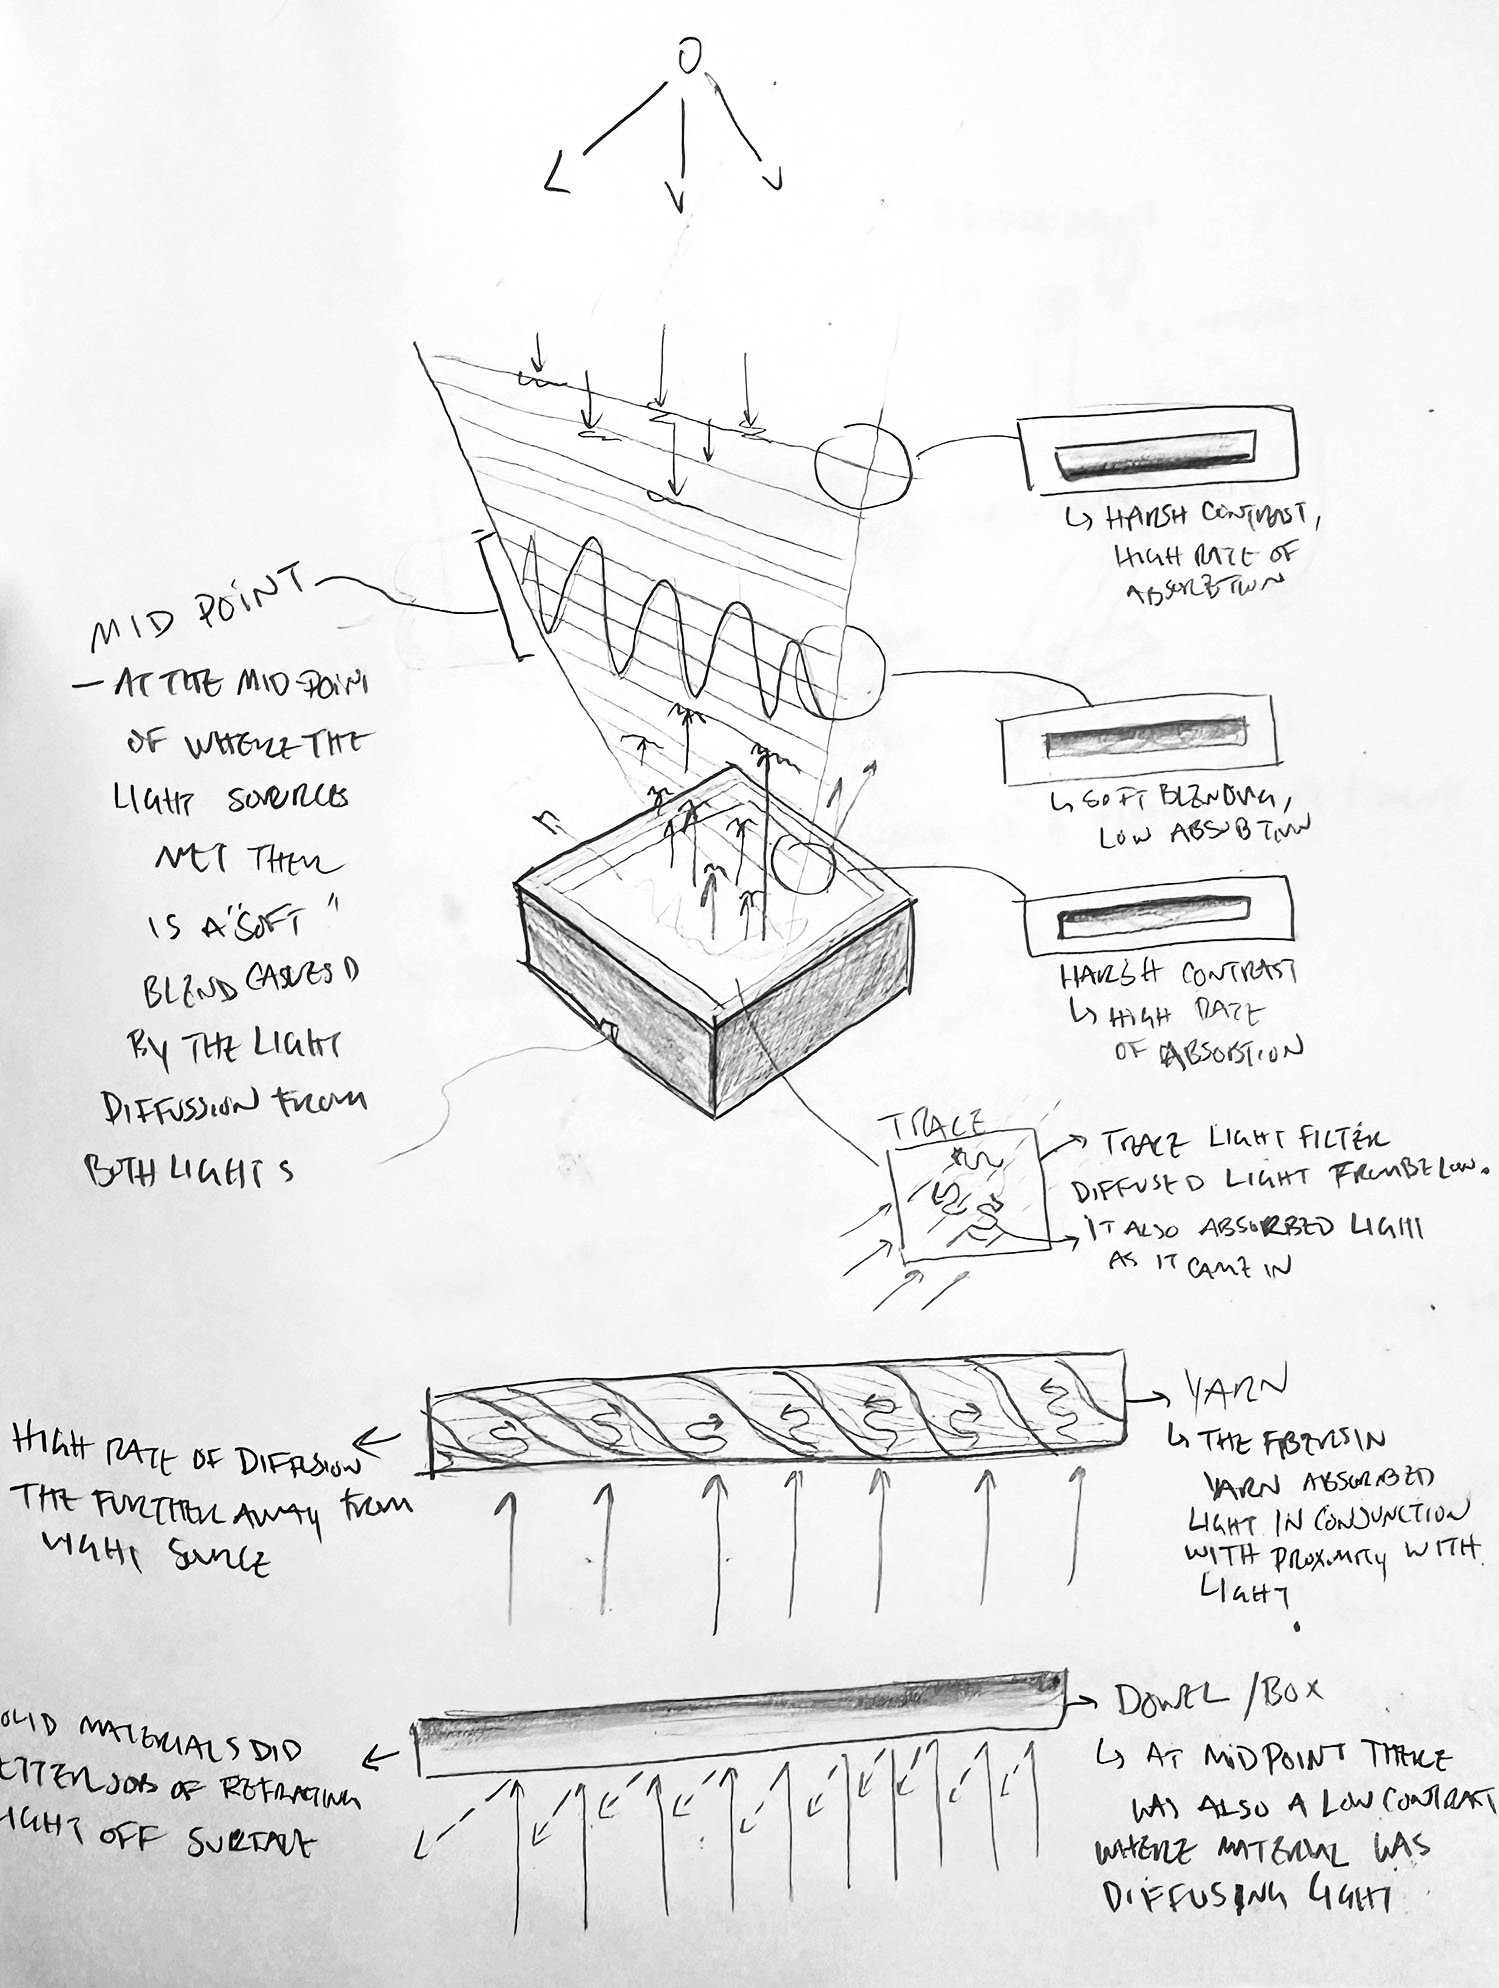 HARSH CONTRAST,
HIGH RATE OF
ABSORBTION
MID POINT
— AT THE MID-POINT
OF WHERE THE
LIGHT SOURCES
MET THER
IS A "SOFT"
BLEND CASUES D
BY THE LIGHT
DIFFUSSION FROM
BOTH LIGHTS
SOFT BLENDING,
LOW ABSUBTION
HARSH CONTRAST
HIGH RATE
OF ABSOBTION
TRACE
TRACE LIGHT FILTER
DIFFUSED LIGHT FROM BELOW.
IT ALSO ABSORBED LIGHT
AS IT CAME IN
HIGH RATE OF DIFFUSION
THE FURTHER AWAY FROM
LIGHT SOURCE
YARN
THE FIBERS IN
YARN ABSORBED
LIGHT IN CONJUNCTION
WITH PROXIMITY WITH
LIGHT.
OLID MATERIALS DID
ETTER JOB OF REFRACTING
IGHT OFF SURFACE
DOWEL /BOX
AT MIDPOINT THERE
WAS ALSO A LOW CONTRAST
WHERE MATERIAL WAS
DIFFUSING LIGHT